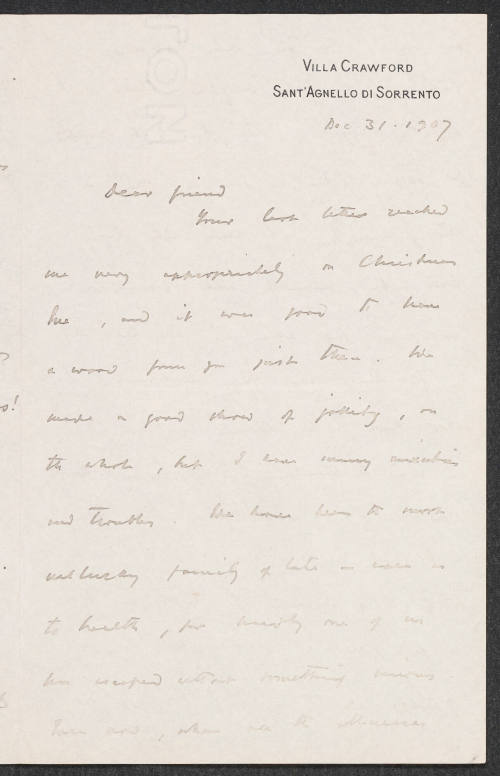 VILLA CRAWFORD
SANT'AGNELLO DI SORRENTO
Dec 31 . 1907
Dear friend
Your last letter reached
me very appropriately on Christmas
Eve, and it was good to have
a word from you just then. We
made a good show of jollity, on
the whole, but I have many anxieties
and troubles. We have been the most
unlucky family of late - even as
to health, for hardly one of us
has escaped without something serious
Even now, when